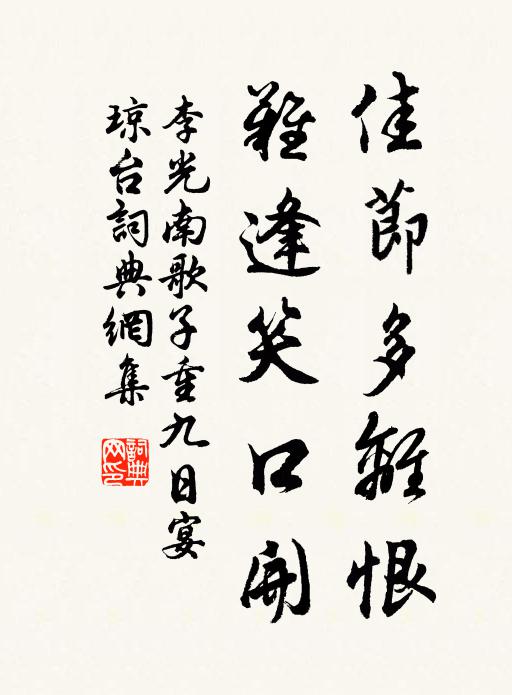 佳節多離恨
難逢笑口開
李光南歌子重九日宴
琼台詞典網集
詞典网印